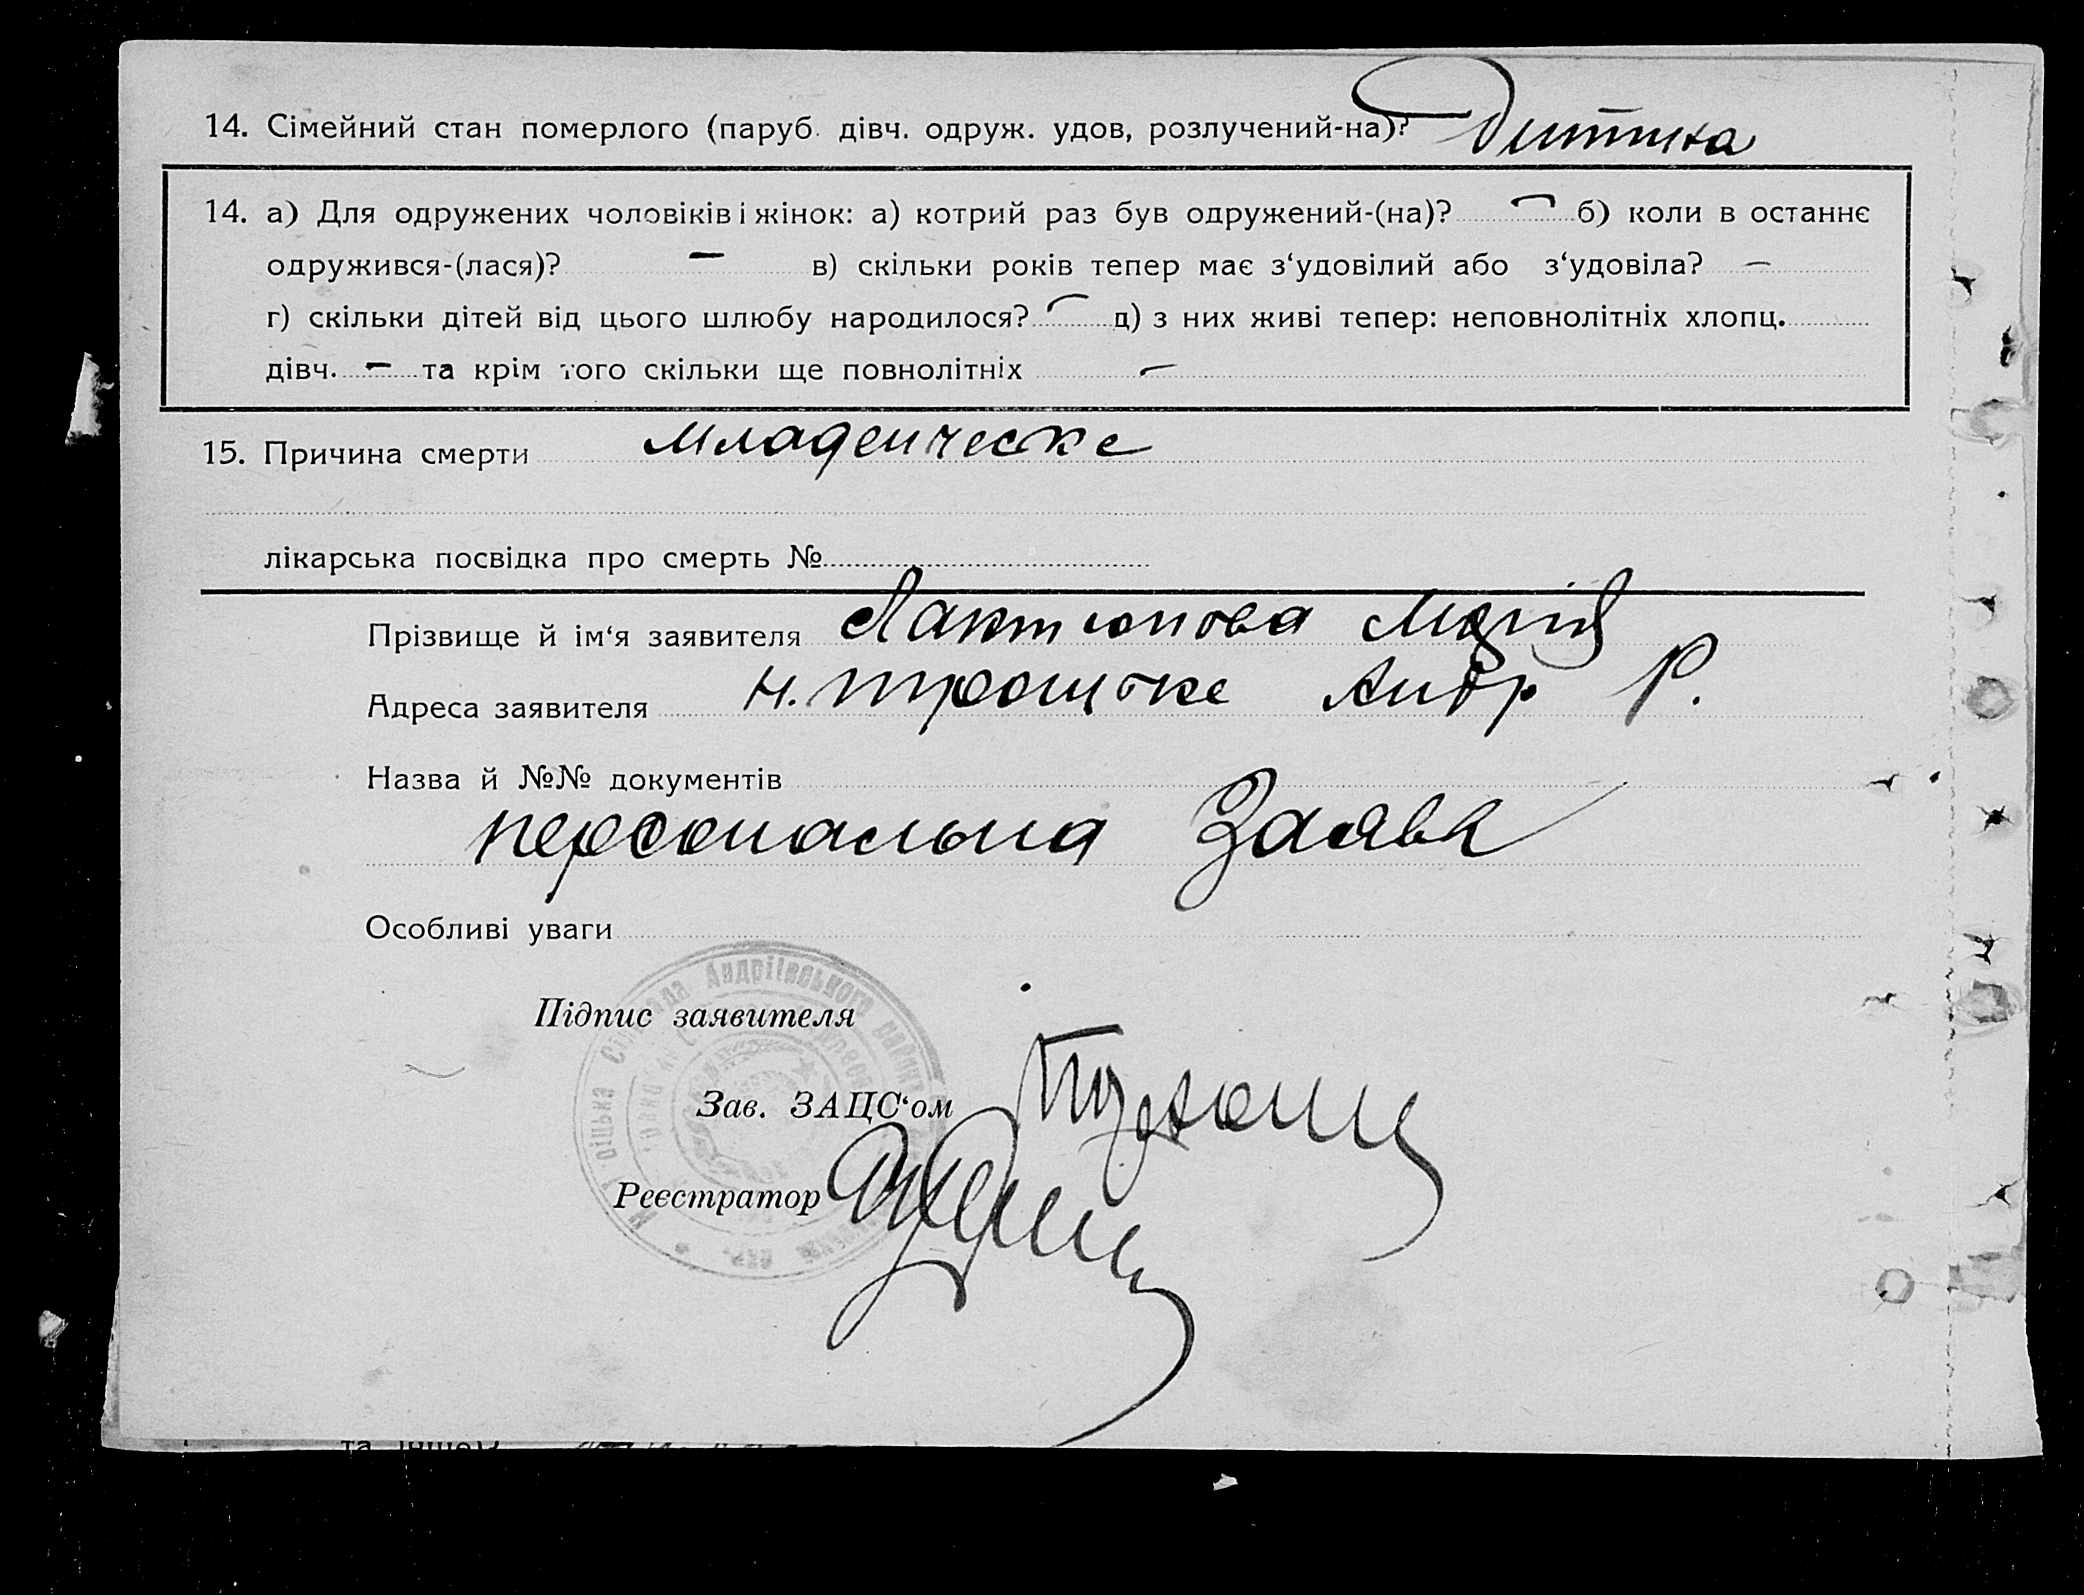 14. Сімейний стан померлого (паруб. дівч. одруж. удов, розлучений-на)? Дитина
14. а) Для одружених чоловіків і жінок: а) котрий раз був одружений-(на)? — б) коли в останнє
одружився-(лася)? — в) скільки років тепер має з‘удовілий або з‘удовіла? —
г) скільки дітей від цього шлюбу народилося? — д) з них живі тепер: неповнолітніх хлопц.
дівч. — та крім того скільки ще повнолітніх —
15. Причина смерти младенческе
лікарська посвідка про смерть №
Прізвище й ім‘я заявителя Лактионова Марія
Адреса заявителя Н. Троицьке Андр Р.
Назва й №№ документів
персональна Заява
Особливі уваги
Підпис заявителя
Зав. ЗАЦС‘ом
Реєстратор
Сільрада Андріївського району
та інше)?